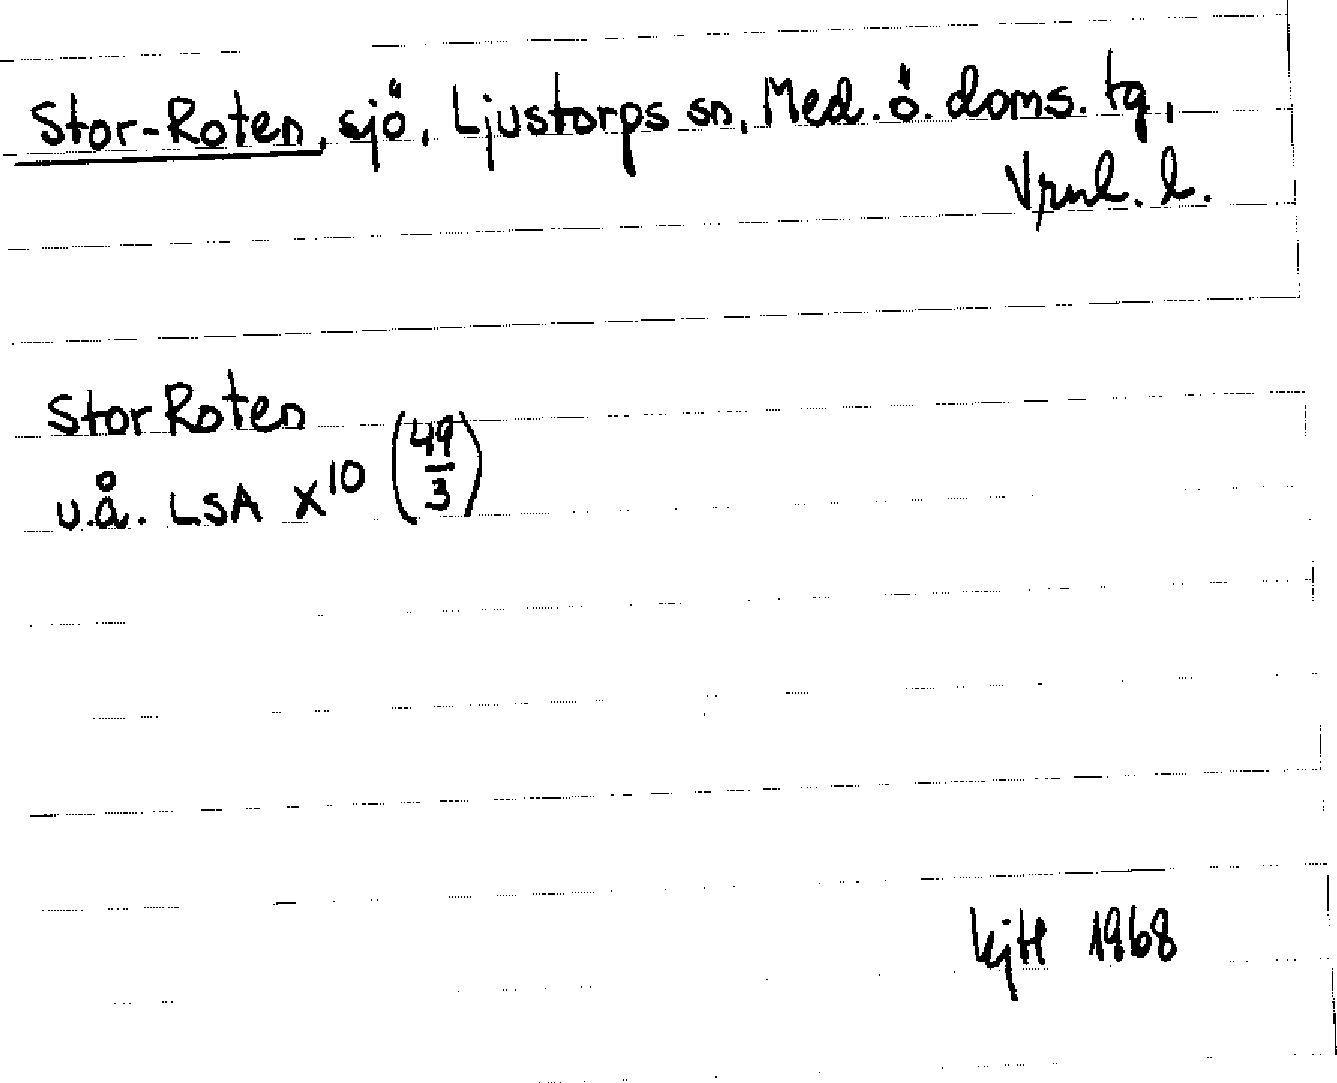 Stor-Roten, sjö, Ljustorps sn, Med. ö. doms. tg,
Vrnl. l.
Stor Roten
u.å. LSA X¹⁰ (49/3)
1968